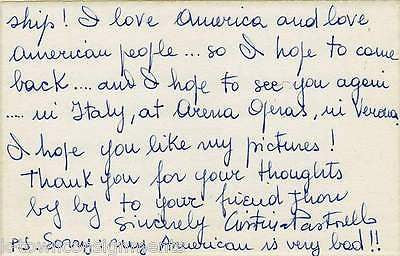 ship! I love America and love
American people... so I hope to come
back.... and I hope to see you again
..... in Italy, at Arena Operas, in Verona
I hope you like my pictures!
Thank you for your thoughts
by by to your friend Thon
Sincerely
PS Sorry: my American is very bad!!